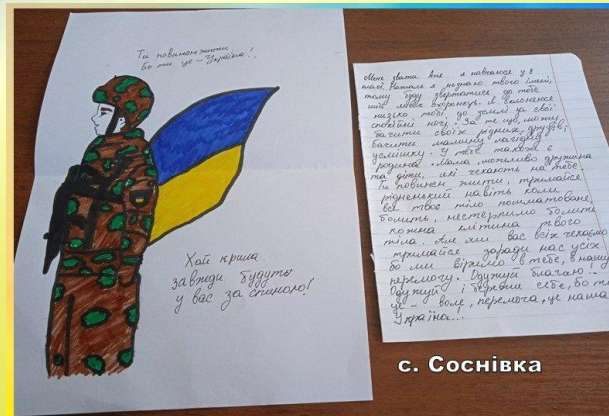 Ти повинен жити
бо ти це - Україна!
Хай крила
завжди будуть
у вас за спиною!
Мене звати Аня я навчаюся у 8
класі. Нажаль я незнаю твого імені,
тому буду звертатися до тебе
мій охоронець. Я вклоняюся
низько тобі до землі за свої
спокійні ночі. За те що можу
бачити своїх рідних, друзів,
бачити мамину лагідну
усмішку. У тебе також є
родина. Мама, можливо дружина
та діти, які чекають на тебе.
Ти повинен жити, тримайся
рідненький навіть коли
все твоє тіло пошматоване,
болить, нестерпимо болить
кожна клітина твого
тіла. Але ми вас всіх чекаємо
тримайся заради нас усіх
бо ми віримо в тебе, в нашу
перемогу! Одужуй благаю!
Одужуй і бережи себе, бо ти
це - воля, перемога, це наша
Україна!..
с. Соснівка